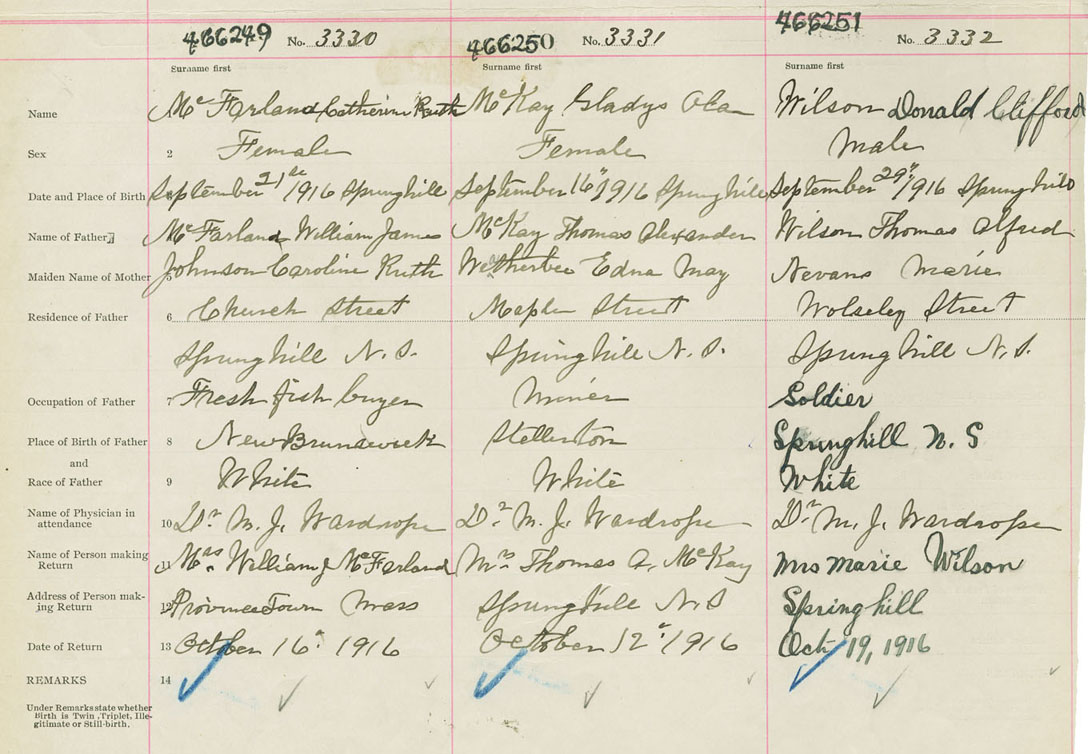 466249 No. 3330 466250 No. 3331 466251 No. 3332
Surname first Surname first Surname first
Name Mc Farland Catherine Ruth McKay Gladys Wilson Donald Clifford
Sex 2 Female Female Male
Date and Place of Birth September 21st 1916 Springhill September 16" 1916 Springhill September 29" 1916 Springhill
Name of Father Mc Farland William James McKay Thomas Alexander Wilson Thomas Alfred
Maiden Name of Mother 5 Johnson Caroline Ruth Wetherbee Edna May Nevans Marie
Residence of Father 6 Church Street Maple Street Wolseley Street
Springhill N.S. Springhill N.S. Springhill N.S.
Occupation of Father 7 Fresh fish buyer Miner Soldier
Place of Birth of Father 8 New Brunswick Stellerton Springhill N.S
and
Race of Father 9 White White White
Name of Physician in
attendance 10 Dr M. J. Wardrope Dr M. J. Wardrope Dr M. J. Wardrope
Name of Person making
Return 11 Mrs. William J McFarland Mrs Thomas A. McKay Mrs Marie Wilson
Address of Person mak-
ing Return 12 Province Town Mass Springhill N.S Springhill
Date of Return 13 October 16" 1916 October 12" 1916 Oct 19, 1916
REMARKS 14
Under Remarks state whether
Birth is Twin, Triplet, Ille-
gitimate or Still-birth.